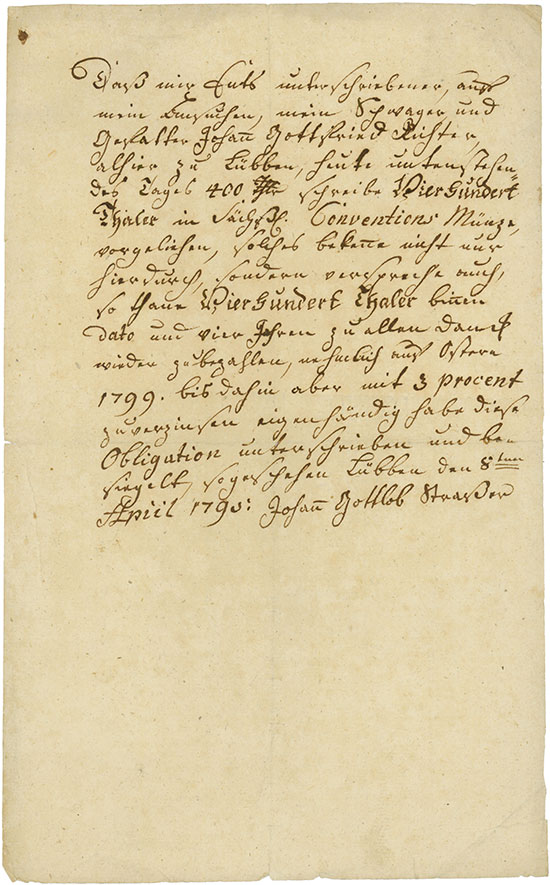 Daß mir Ents unterschriebener, auff
mein Ansuchen, mein Schwager und
Gevatter Johañ Gottfried Richter
alhier zu Lübben, heute untenstehen-
des Tages 400 Thlr schreibe Vierhundert
Thaler in Sächß. Conventions Münze,
vorgeliehen, solches bekeñe nicht nur
hierdurch, sondern verspreche auch,
so thane Vierhundert Thaler binnen
dato und vier Jahren zu allen Danck
wieder zubezahlen, nehmlich auf Ostern
1799. bis dahin aber mit 3 procent
zuverzinsen eigenhändig habe diese
Obligation unterschrieben und be-
siegelt, so geschehen Lübben den 8ten
April 1795: Johañ Gottlob Straßer